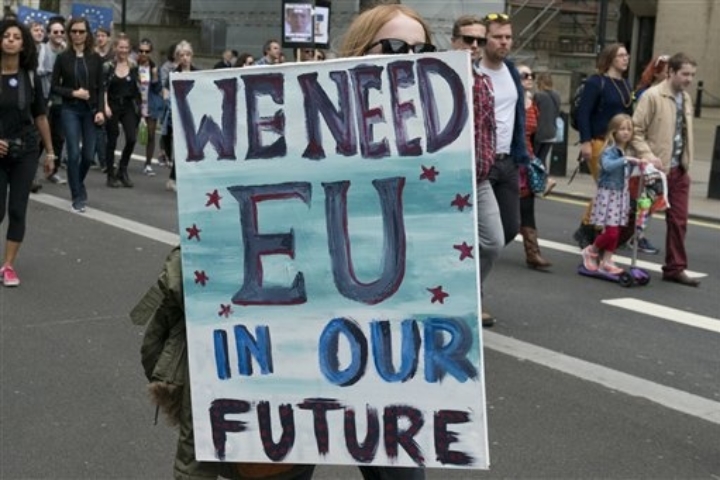 WE NEED
EU
IN OUR
FUTURE